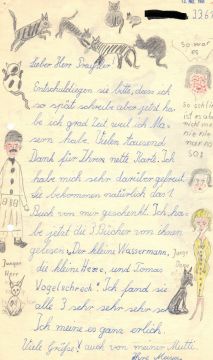 12. Mai 196
336
Lieber Herr Preußler
Entschuldigen sie bitte, dass ich
so spät schreibe aber jetzt ha
be ich grad Zeit und ich Ma
sern habe. Vielen Tausend
Dank für Ihren nette Karte. Ich
habe mich sehr darüber gefreut
die bekommen natürlich das 1
Buch von mir geschenkt. Ich ha
be jetzt die 3 Bücher von ihnen
gelesen, Der kleine Wassermann,
die kleine Hexe, und Tomas
Vogelschreck! Ich fand sie
alle 3 sehr sehr sehr sehr
Ich meine es ganz erlich.
Viele Grüße! auch von meiner Mutti
Ihre
so war
es
so schli
ist es aber
nie nie
so!
Junger
Herr
Junge